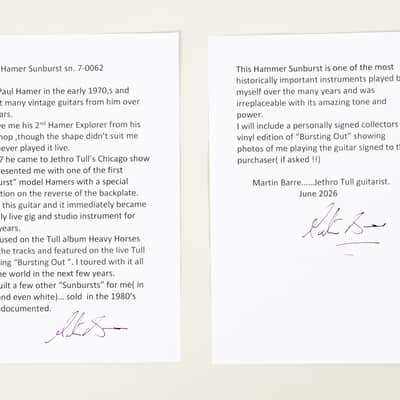 Hamer Sunburst sn. 7-0062
Paul Hamer in the early 1970,s and
t many vintage guitars from him over
ars.
ve me his 2nd Hamer Explorer from his
hop ,though the shape didn't suit me
never played it live.
7 he came to Jethro Tull`s Chicago show
resented me with one of the first
urst" model Hamers with a special
tion on the reverse of the backplate.
this guitar and it immediately became
ly live gig and studio instrument for
years.
used on the Tull album Heavy Horses
the tracks and featured on the live Tull
ing "Bursting Out ". I toured with it all
he world in the next few years.
uilt a few other "Sunbursts" for me( in
and even white)... sold in the 1980's
documented.
This Hammer Sunburst is one of the most
historically important instruments played by
myself over the many years and was
irreplaceable with its amazing tone and
power.
I will include a personally signed collectors
vinyl edition of "Bursting Out" showing
photos of me playing the guitar signed to the
purchaser( if asked !!)
Martin Barre......Jethro Tull guitarist.
June 2026